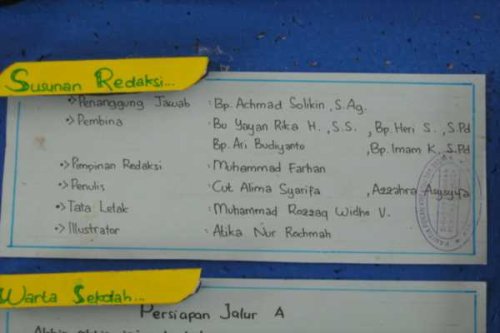 Susunan Redaksi...
•> Penanggung Jawab : Bp. Achmad Solikin, S.Ag.
•> Pembina : Bu Yayan Rika H., S.S., Bp. Heri S., S.Pd
Bp. Ari Budiyanto, Bp. Imam K, S.Pd
•> Pimpinan Redaksi : Muhammad Farhan
•> Penulis : Cut Alima Syarifa, Azzahra Asysyifa
•> Tata Letak : Muhammad Rozzaq Widho V.
•> Illustrator : Atika Nur Rochmah
Warta Sekolah...
Persiapan Jalur A